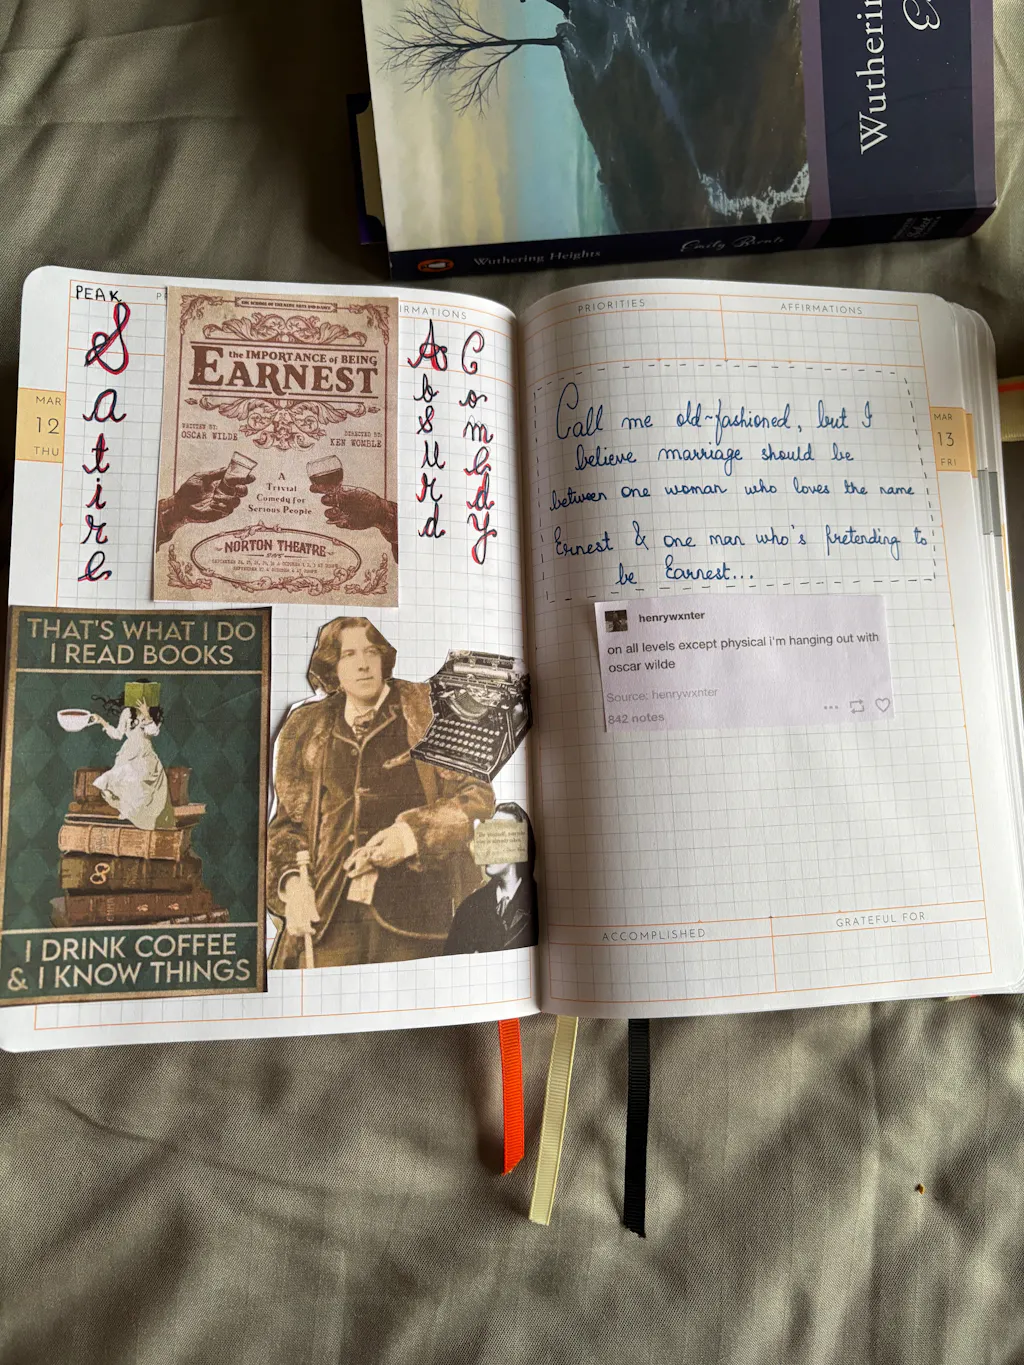 Wutherin
E
Wuthering Heights
Emily Brontë
PEAK
Satire
IRMATIONS
MAR
12
THU
THE SCHOOL OF THEATRE ARTS AND DANCE
the IMPORTANCE of BEING
EARNEST
WRITTEN BY:
OSCAR WILDE
DIRECTED BY:
KEN WOMBLE
A
Trivial
Comedy for
Serious People
NORTON THEATRE
Absurd
Comedy
THAT'S WHAT I DO
I READ BOOKS
I DRINK COFFEE
& I KNOW THINGS
PRIORITIES
AFFIRMATIONS
Call me old-fashioned, but I
believe marriage should be
between one woman who loves the name
Ernest & one man who's pretending to
be Earnest...
MAR
13
FRI
henrywxnter
on all levels except physical i'm hanging out with
oscar wilde
Source: henrywxnter
842 notes
ACCOMPLISHED
GRATEFUL FOR